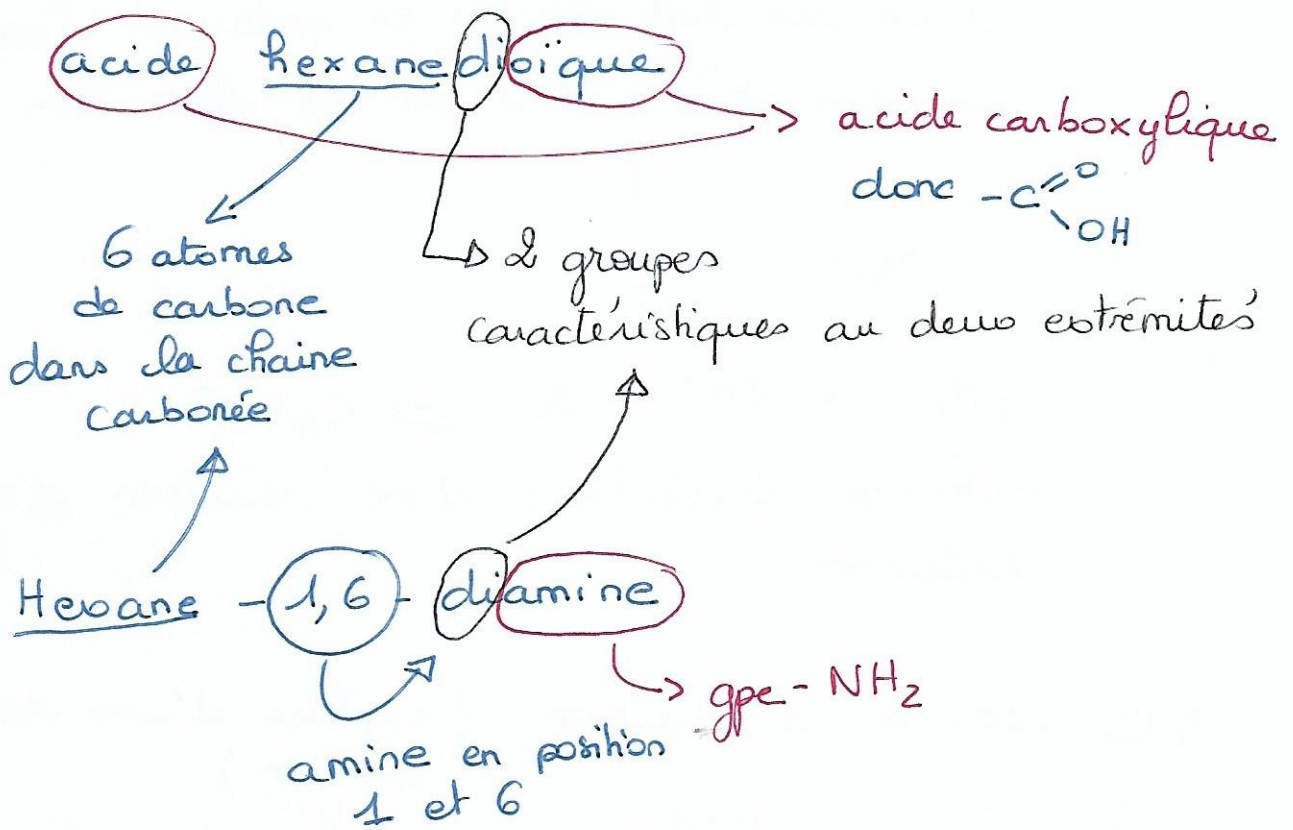 acide hexanedioïque
acide carboxylique
donc -C=O
OH
6 atomes
de carbone
dans la chaine
carbonée
2 groupes
caractéristiques au deux extrémités
Hexane -1,6- diamine
gpe - NH2
amine en position
1 et 6